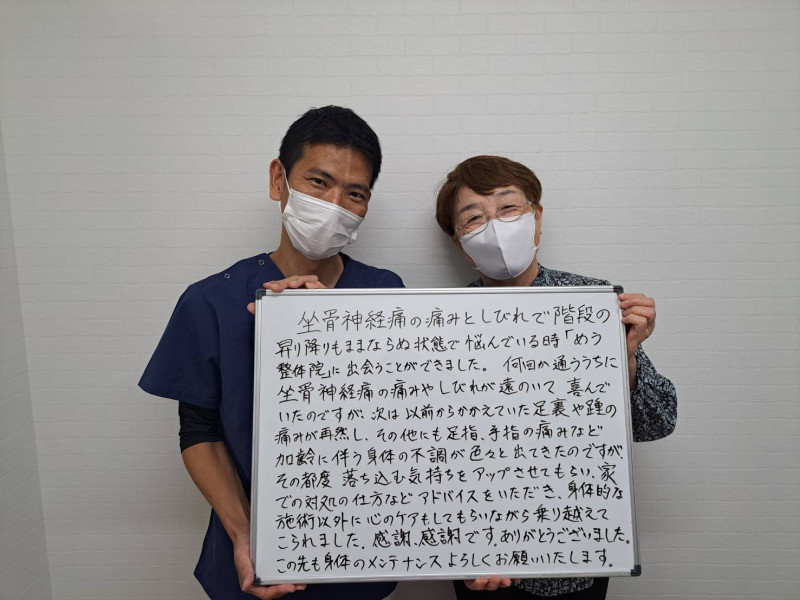 坐骨神経痛の痛みとしびれで階段の
昇り降りもままならぬ状態で悩んでいる時「めう
整体院」に出会うことができました。 何回か通ううちに
坐骨神経痛の痛みやしびれが遠のいて 喜んで
いたのですが、次は以前からかかえていた足裏や踵の
痛みが再燃し、その他にも足指、手指の痛みなど
加齢に伴う身体の不調が色々と出てきたのですが、
その都度 落ち込む気持ちをアップさせてもらい、家
での対処の仕方などアドバイスをいただき、身体的な
施術以外に心のケアもしてもらいながら乗り越えて
こられました。感謝、感謝です。ありがとうございました。
この先も身体のメンテナンスよろしくお願いいたします。